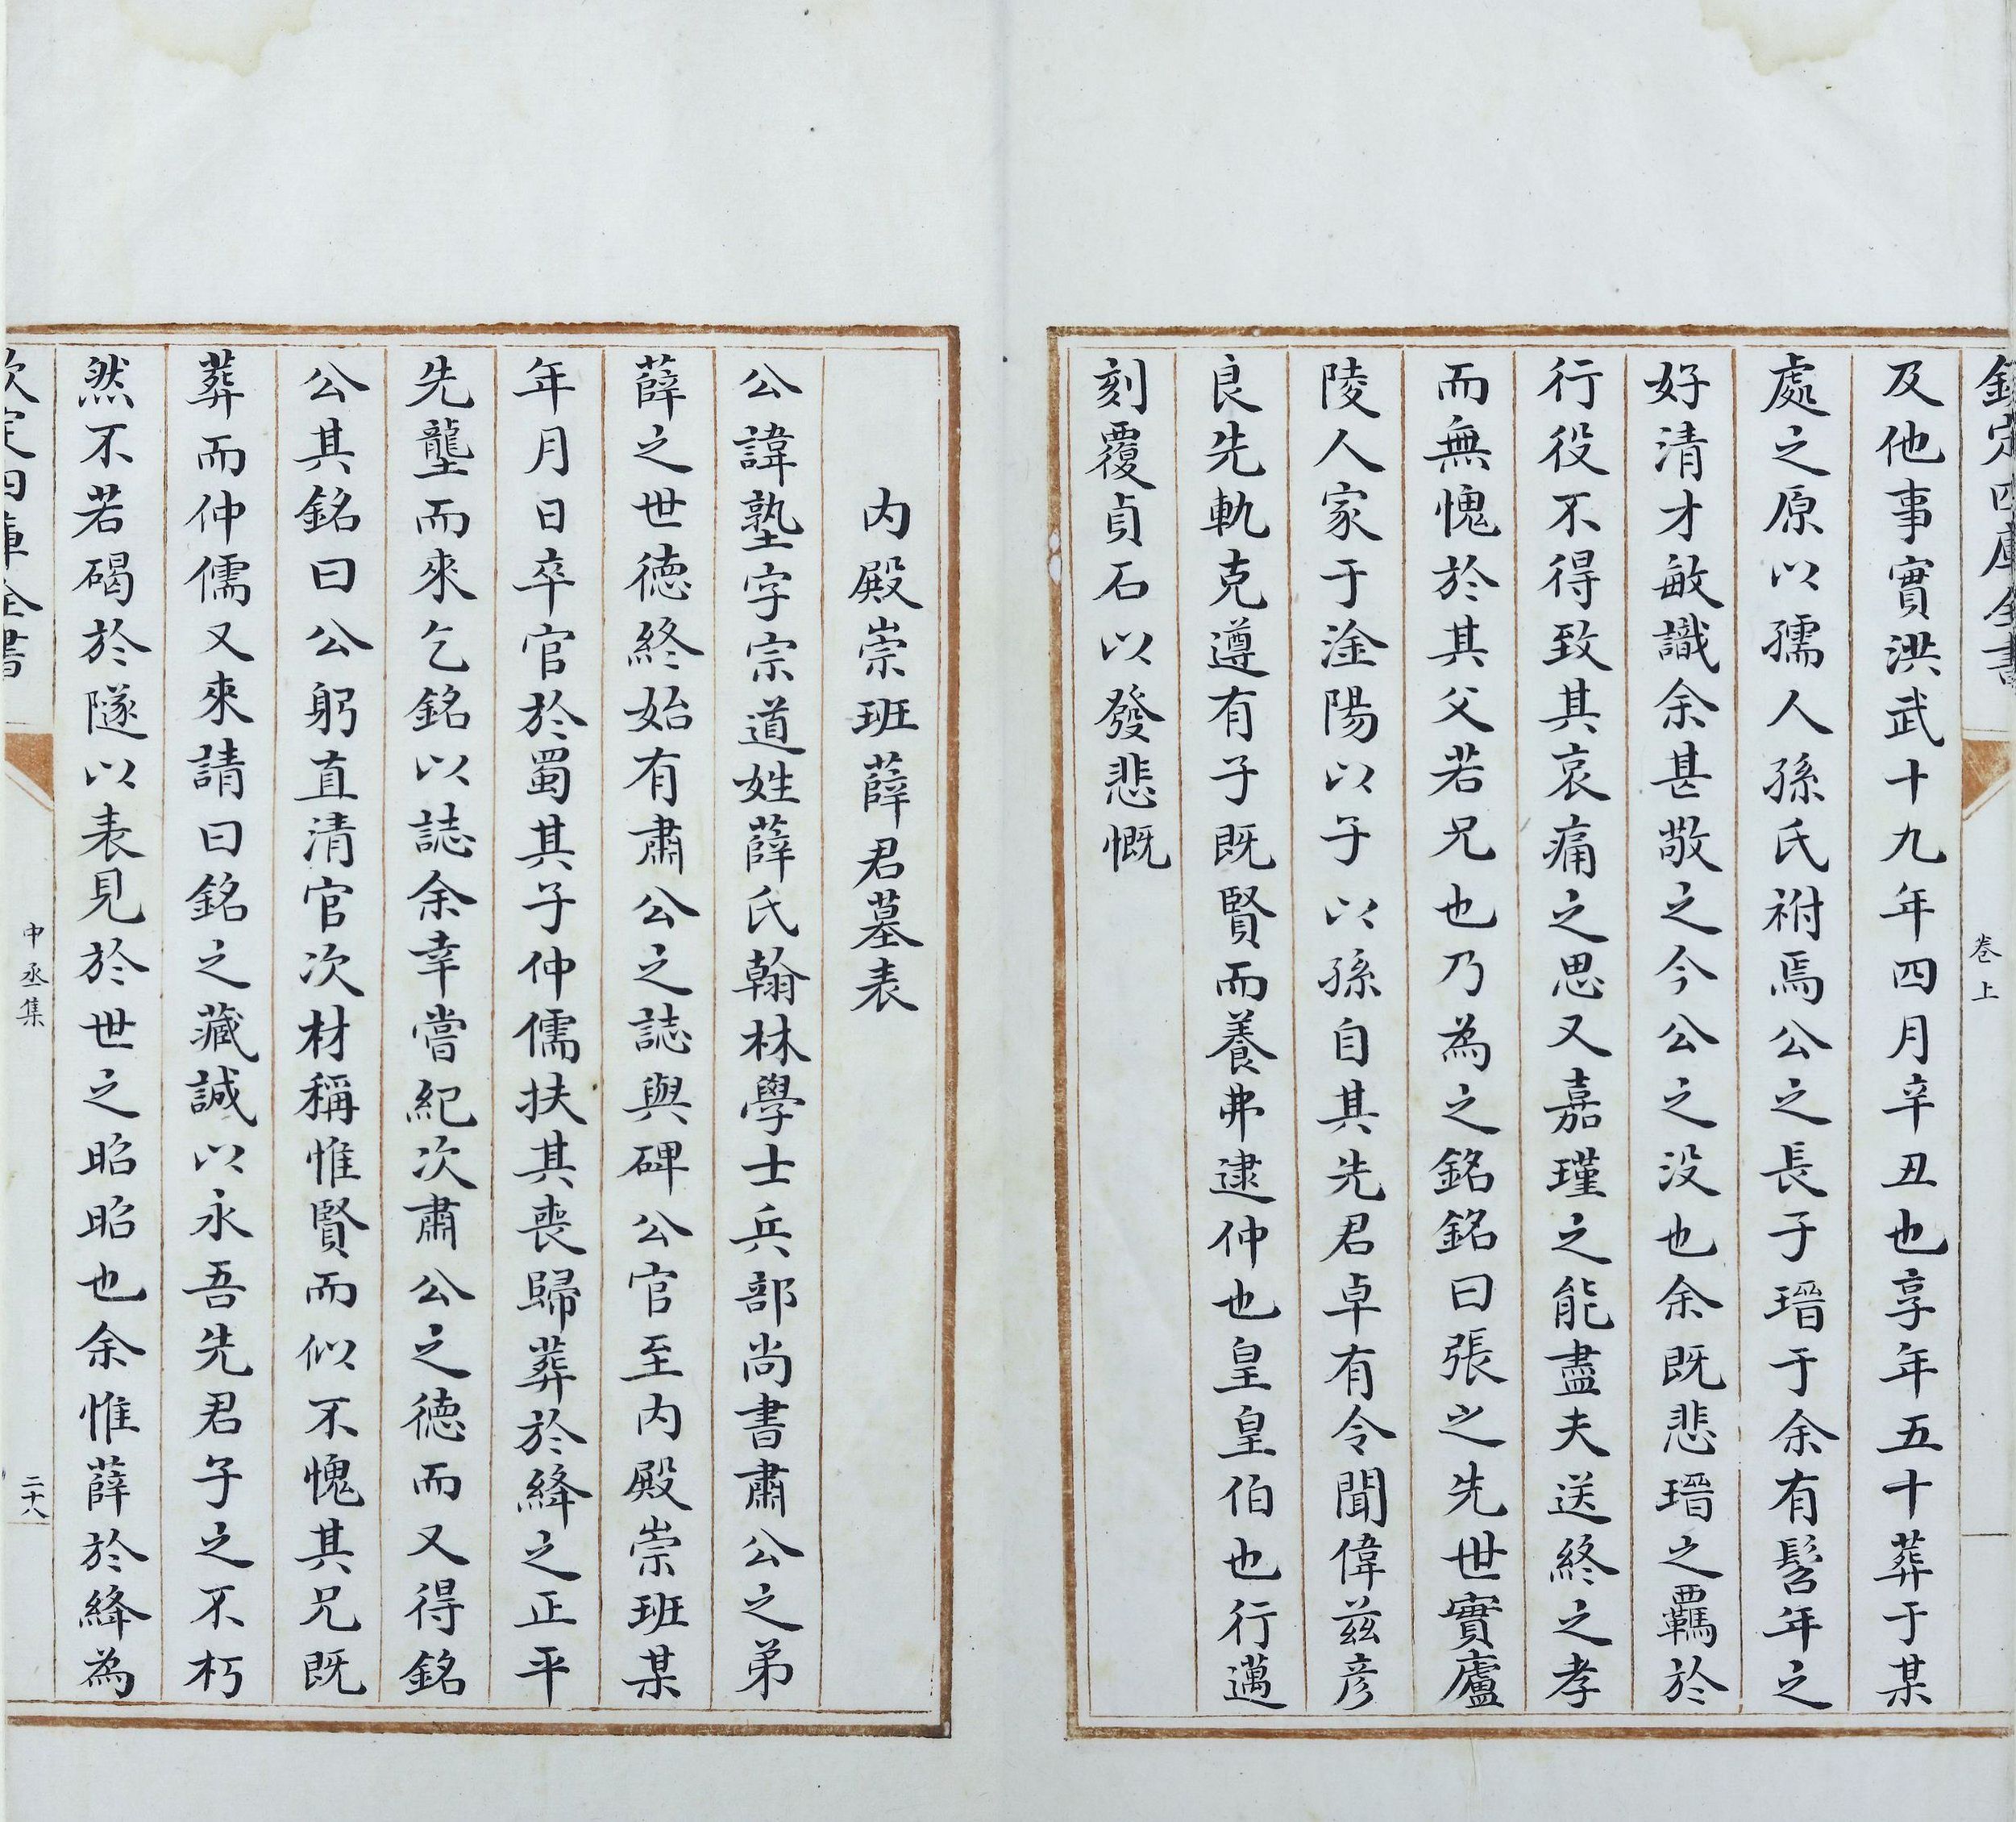 欽定四庫全書
卷上
及他事實洪武十九年四月辛丑也享年五十葬于某
處之原以孺人孫氏祔焉公之長子瑨于余有髫年之
好清才敏識余甚敬之今公之没也余既悲瑨之羈於
行役不得致其哀痛之思又嘉瑾之能盡夫送終之孝
而無愧於其父若兄也乃為之銘銘曰張之先世實廬
陵人家于淦陽以子以孫自其先君卓有令聞偉兹彦
良先軌克遵有子既賢而養弗逮仲也皇皇伯也行邁
刻覆貞石以發悲慨
内殿崇班薛君墓表
公諱塾字宗道姓薛氏翰林學士兵部尚書肅公之弟
薛之世徳終始有肅公之誌與碑公官至内殿崇班某
年月日卒官於蜀其子仲儒扶其喪歸葬於絳之正平
先壟而來乞銘以誌余幸嘗紀次肅公之徳而又得銘
公其銘曰公躬直清官次材稱惟賢而似不愧其兄既
葬而仲儒又來請曰銘之藏誠以永吾先君子之不朽
然不若碣於隧以表見於世之昭昭也余惟薛於絳為
欽定四庫全書
中丞集
二十八